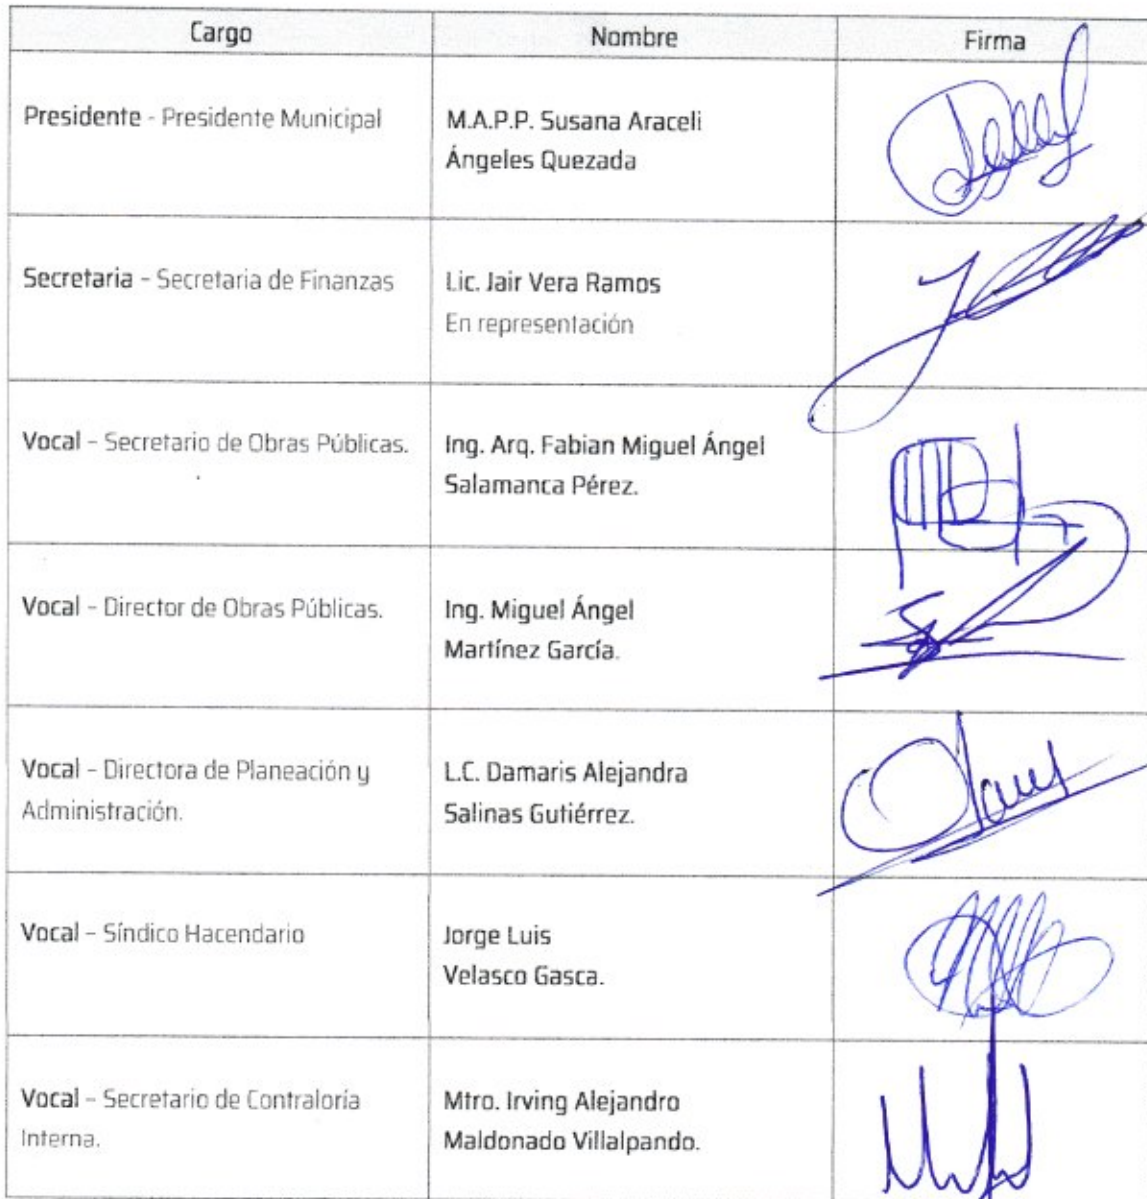 Cargo Nombre Firma
Presidente - Presidente Municipal
M.A.P.P. Susana Araceli
Ángeles Quezada
Secretaria - Secretaria de Finanzas
Lic. Jair Vera Ramos
En representación
Vocal - Secretario de Obras Públicas.
Ing. Arq. Fabian Miguel Ángel
Salamanca Pérez.
Vocal - Director de Obras Públicas.
Ing. Miguel Ángel
Martínez García.
Vocal - Directora de Planeación y
Administración.
L.C. Damaris Alejandra
Salinas Gutiérrez.
Vocal - Síndico Hacendario
Jorge Luis
Velasco Gasca.
Vocal - Secretario de Contraloría
Interna.
Mtro. Irving Alejandro
Maldonado Villalpando.